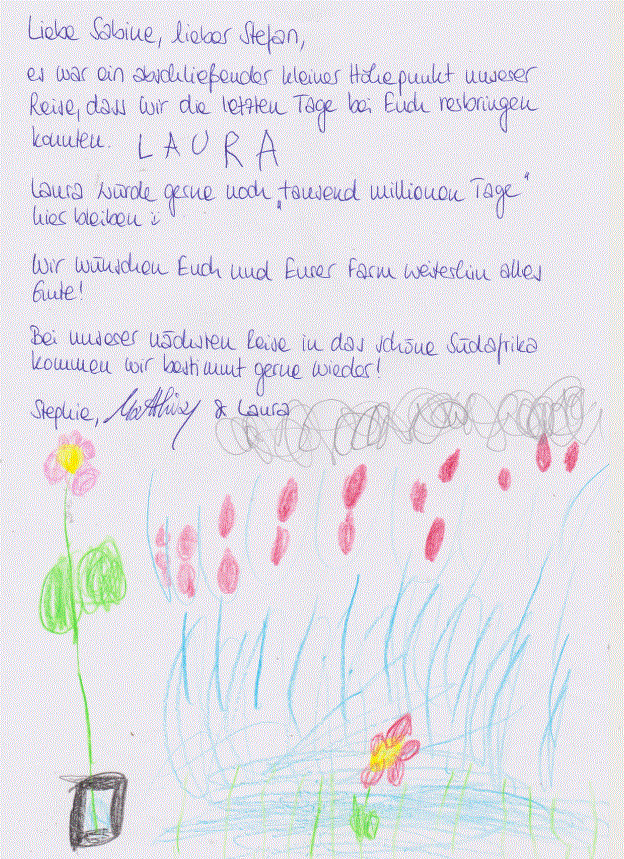 Liebe Sabine, lieber Stefan,
es war ein abschließender kleiner Höhepunkt unserer
Reise, dass wir die letzten Tage bei Euch verbringen
konnten. LAURA
Laura würde gerne noch „tausend millionen Tage"
hier bleiben :)
Wir wünschen Euch und Eurer Farm weiterhin alles
Gute!
Bei unserer nächsten Reise in das schöne Südafrika
kommen wir bestimmt gerne wieder!
Stephie, Matthias & Laura